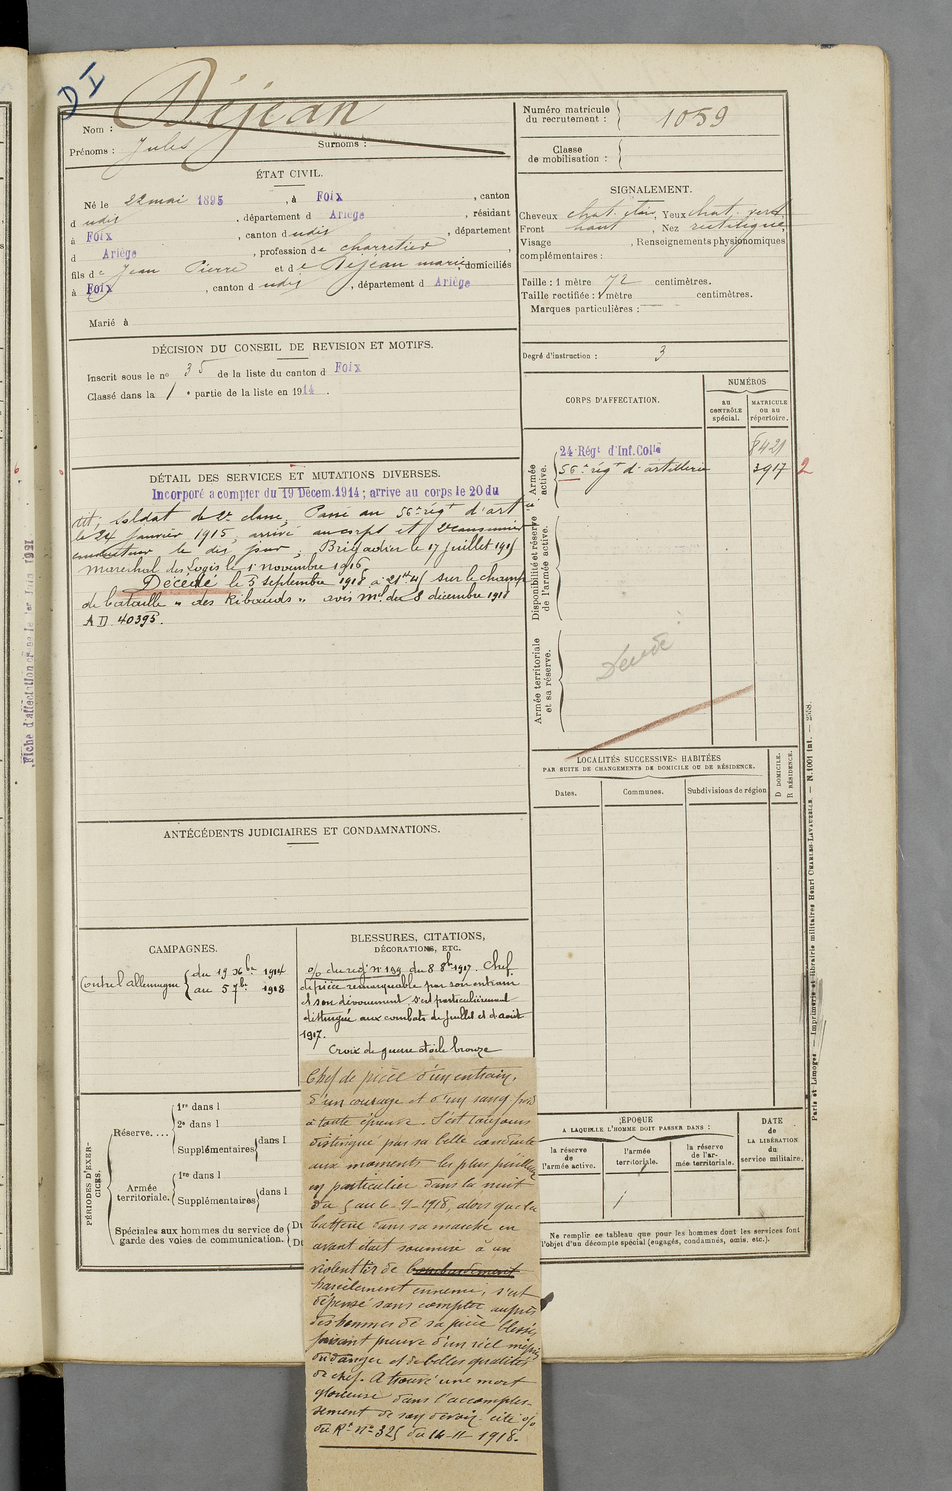 DI
Déjean
Nom :
Prénoms : Jules Surnoms :
Numéro matricule
du recrutement : 1059
Classe
de mobilisation :
ÉTAT CIVIL.
Né le 22 mai 1895, à Foix, canton
d udis, département d Ariège, résidant
à Foix, canton d udis, département
d Ariège, profession de charretier,
fils de Jean Pierre et de Déjean marie, domiciliés
à Foix, canton d udis, département d Ariège
Marié à
SIGNALEMENT.
Cheveux chat. clair, Yeux chat. vert,
Front haut, Nez rectiligne,
Visage , Renseignements physionomiques
complémentaires :
Taille : 1 mètre 72 centimètres.
Taille rectifiée : 1 mètre centimètres.
Marques particulières :
Degré d'instruction : 3
DÉCISION DU CONSEIL DE REVISION ET MOTIFS.
Inscrit sous le no 35 de la liste du canton d Foix
Classé dans la 1e partie de la liste en 1914.
DÉTAIL DES SERVICES ET MUTATIONS DIVERSES.
Incorporé a compter du 19 Décem. 1914 ; arrive au corps le 20 du
dit, soldat de 2e classe, Passé au 56e régt d'art
le 24 janvier 1915, arrivé au corps et 2e canonnier
conducteur le dis jour, Brigadier le 17 juillet 1915
marechal des logis le 1r novembre 1916
Décédé le 5 septembre 1918 à 21h45 sur le champ
de bataille « des Ribauds » avis mel du 8 décembre 1918
A D. 40395.
CORPS D'AFFECTATION.
NUMÉROS
au
CONTRÔLE
spécial.
MATRICULE
ou au
répertoire.
Armée
active.
24 Régt d'Inf. Colle 8421
56e régt d'artillerie 3917 2
Disponibilité et réserve
de l'armée active.
Armée territoriale
et sa réserve.
Décédé
LOCALITÉS SUCCESSIVES HABITÉES
PAR SUITE DE CHANGEMENTS DE DOMICILE OU DE RÉSIDENCE.
Dates.
Communes.
Subdivisions de région
D DOMICILE.
R RÉSIDENCE.
ANTÉCÉDENTS JUDICIAIRES ET CONDAMNATIONS.
CAMPAGNES.
Contre l'allemagne du 19 Xbre 1914
au 5 7bre 1918
BLESSURES, CITATIONS,
DÉCORATIONS, ETC.
% du régt no 199 du 8 8bre 1917. Chef
de pièce remarquable par son entrain
et son dévouement, s'est particulièrement
distingué aux combats de juillet et d'août
1917.
Croix de guerre étoile bronze
Chef de pièce d'un entrain,
d'un courage et d'un sang froid
à toute épreuve. S'est toujours
distingué par sa belle conduite
aux moments les plus périlleux
en particulier dans la nuit
du 5 au 6-9-1918, alors que la
batterie dans sa marche en
avant était soumise à un
violent tir de bombardement
harcèlement ennemi, s'est
dépensé sans compter auprès
des hommes de sa pièce blessés
faisant preuve d'un réel mépris
du danger et de belles qualités
de chef. A trouvé une mort
glorieuse dans l'accomplis-
sement de son devoir. cité %
du Rt No 325 du 14-11-1918.
PÉRIODES D'EXER-
CICES.
Réserve....
1re dans l
2e dans l
Supplémentaires dans l
Armée
territoriale.
1re dans l
Supplémentaires dans l
Spéciales aux hommes du service de
garde des voies de communication.
Du
Du
ÉPOQUE
A LAQUELLE L'HOMME DOIT PASSER DANS :
la réserve
de
l'armée active.
l'armée
territoriale.
la réserve
de l'ar-
mée territoriale.
DATE
de
LA LIBÉRATION
du
service militaire.
Ne remplir ce tableau que pour les hommes dont les services font
l'objet d'un décompte spécial (engagés, condamnés, omis, etc.).
Paris et Limoges — Imprimerie et librairie militaires Henri CHARLES-LAVAUZELLE. — N. 1001 int. —